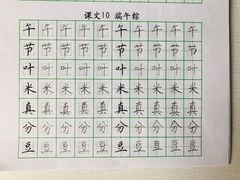 课文10 端午粽
午午午午午午午午
节节节节节节节节
叶叶叶叶叶叶叶叶
米米米米米米米米
真真真真真真真真
分分分分分分分分
豆豆豆豆豆豆豆豆